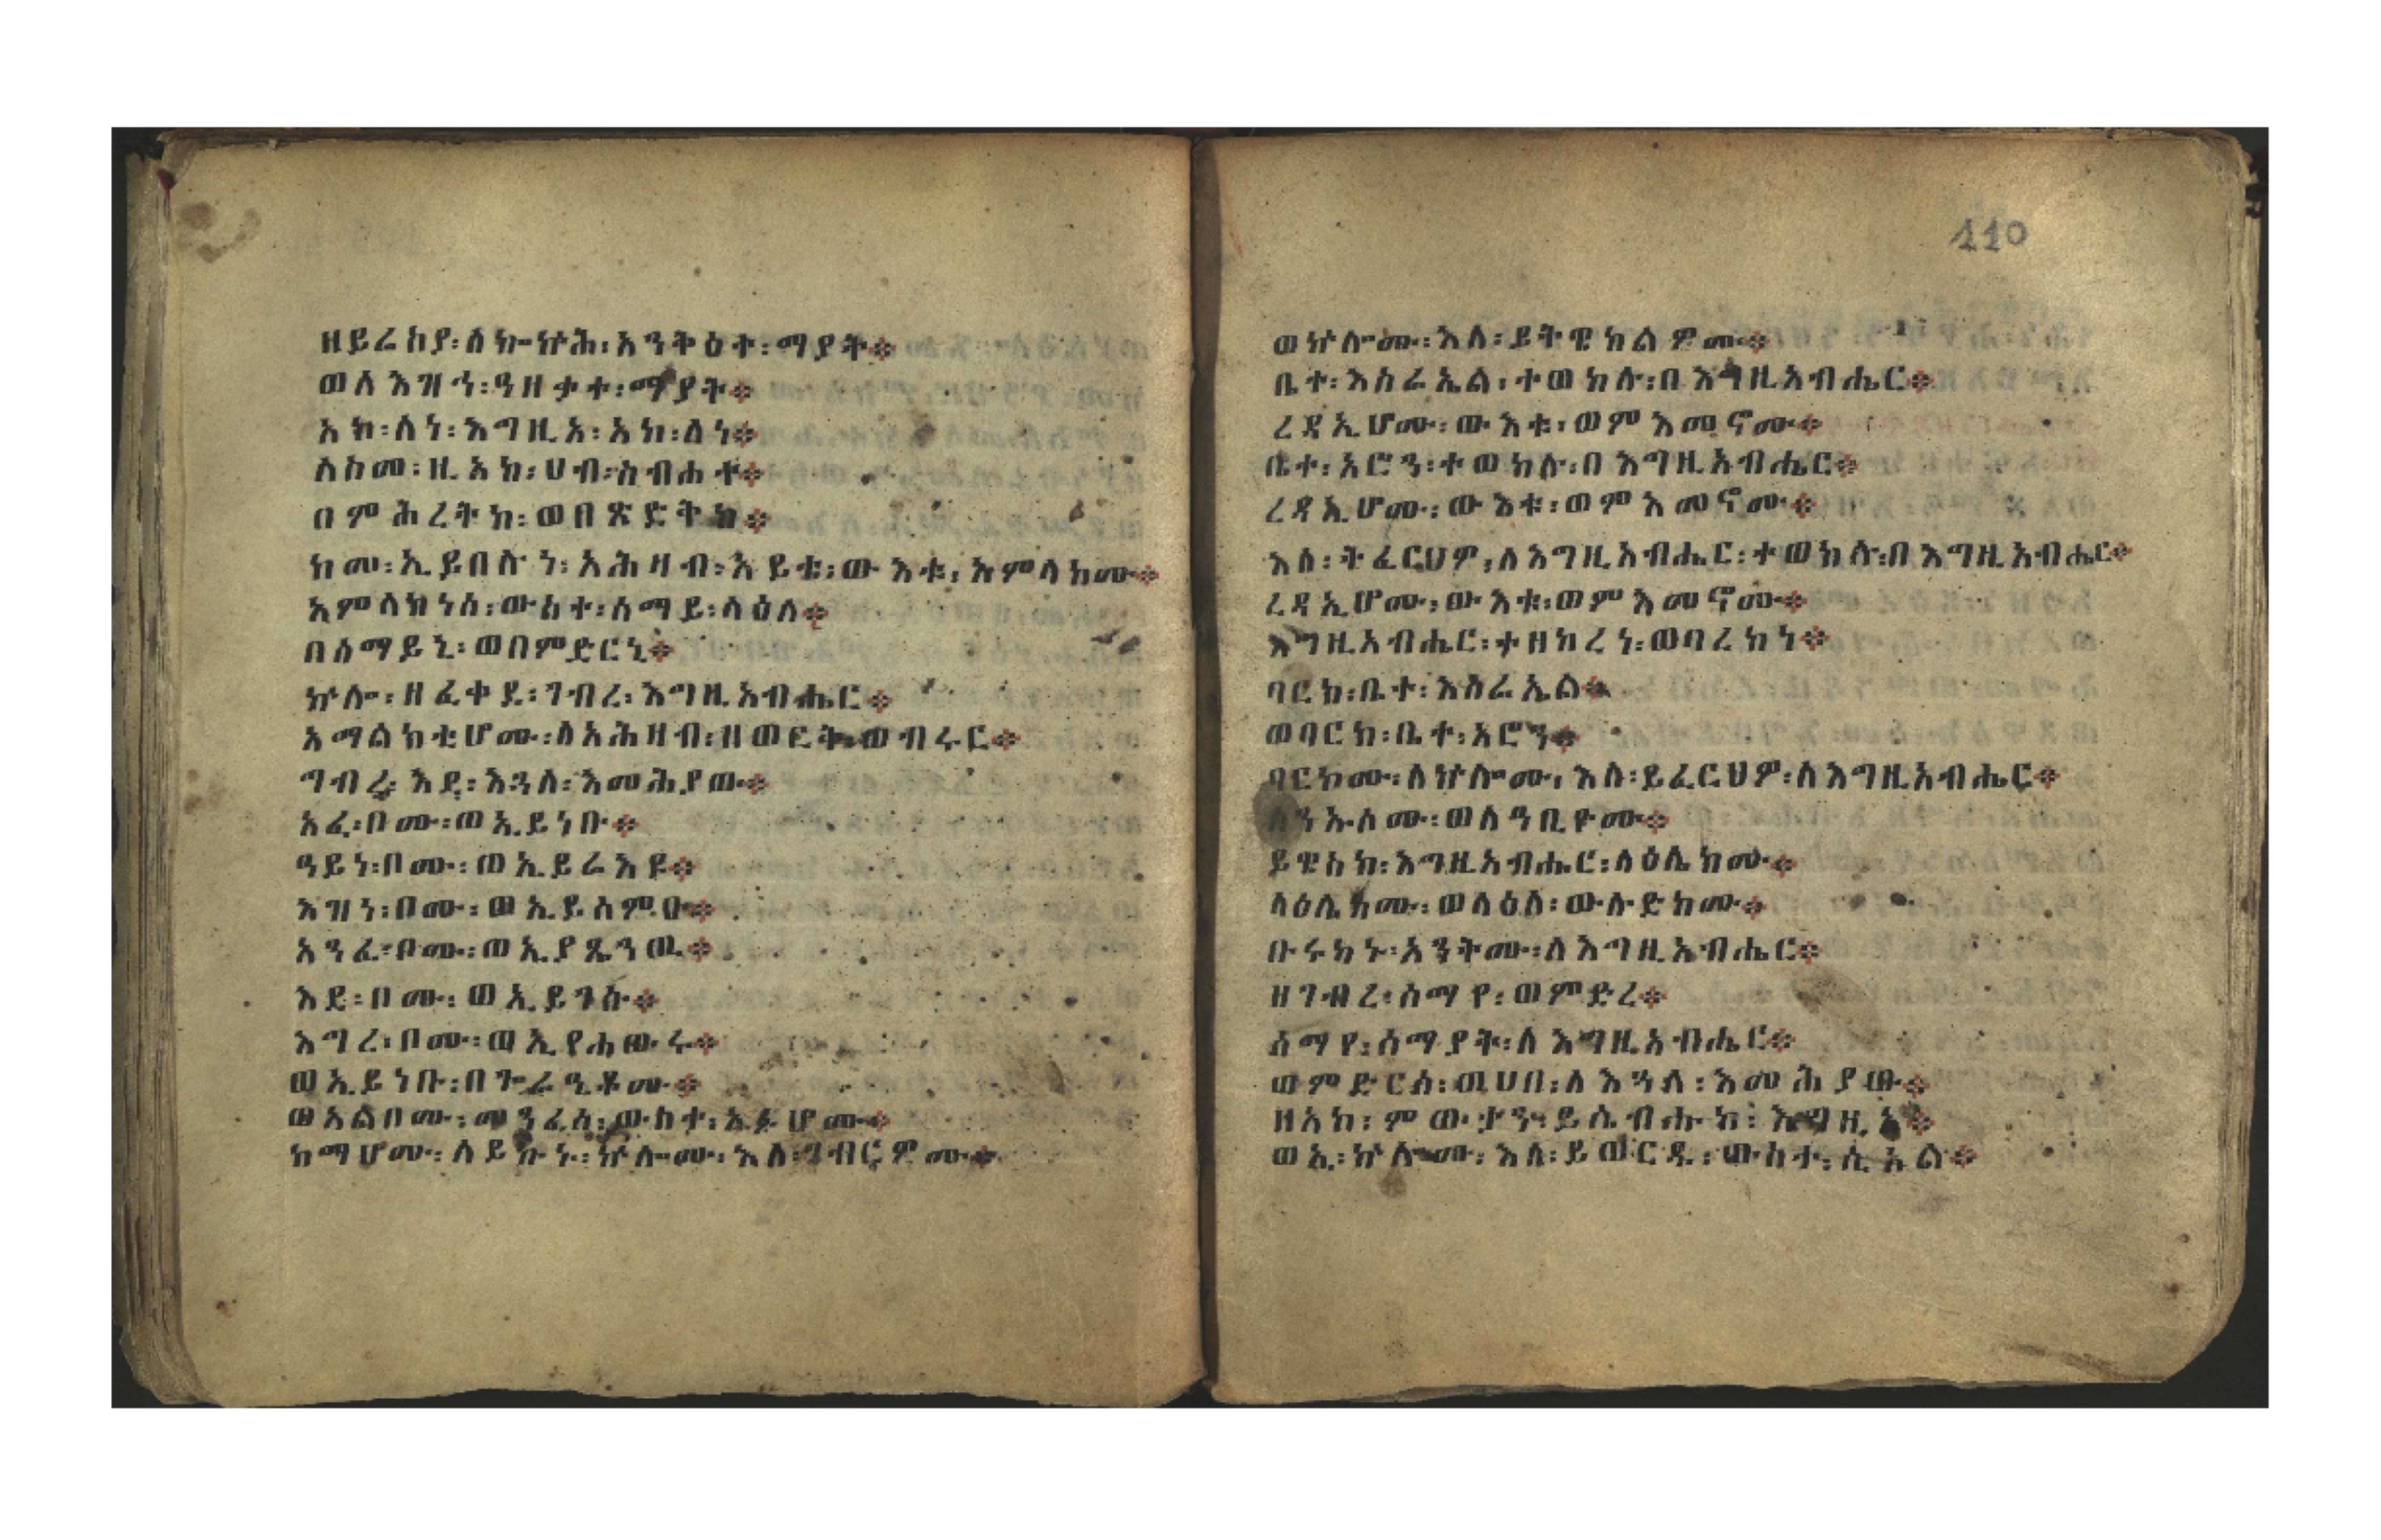 ዘይሬስያ፡ለኰኵሕ፡አንቅዕተ፡ማያት።
ወለእዝኅ፡ዓዘቃተ፡ማያት።
አኮ፡ለነ፡እግዚአ፡አኮ፡ለነ።
ለስመ፡ዚአከ፡ሀብ፡ስብሐተ።
በምሕረትከ፡ወበጽድቅከ።
ከመ፡ኢይበሉነ፡አሕዛብ፡አይቴ፡ውእቱ፡አምላክሙ።
አምላክነሰ፡ውስተ፡ሰማይ፡ላዕለ።
በሰማይኒ፡ወበምድርኒ።
ኵሎ፡ዘፈቀደ፡ገብረ፡እግዚአብሔር።
አማልክቲሆሙ፡ለአሕዛብ፡ዘወርቅ፡ወብሩር።
ግብረ፡እደ፡እጓለ፡እመሕያው።
አፈ፡በሙ፡ወኢይነቡ።
ዓይነ፡በሙ፡ወኢይሬእዩ።
እዝነ፡በሙ፡ወኢይሰምዑ።
አንፈ፡ቦሙ፡ወኢያጼንዉ።
እደ፡በሙ፡ወኢይገሱ።
እግረ፡በሙ፡ወኢየሐውሩ።
ወኢይነቡ፡በጐራዒቶሙ።
ወአልቦሙ፡መንፈሰ፡ውስተ፡አፉሆሙ።
ከማሆሙ፡ለይኩኑ፡ኵሎሙ፡እለ፡ገብርዎሙ።
ወኵሎሙ፡እለ፡ይትዌከልዎሙ።
ቤተ፡እስራኤል፡ተወከሉ፡በእግዚአብሔር።
ረዳኢሆሙ፡ውእቱ፡ወምእመኖሙ።
ቤተ፡አሮን፡ተወከሉ፡በእግዚአብሔር።
ረዳኢሆሙ፡ውእቱ፡ወምእመኖሙ።
እለ፡ትፈርህዎ፡ለእግዚአብሔር፡ተወከሉ፡በእግዚአብሔር።
ረዳኢሆሙ፡ውእቱ፡ወምእመኖሙ።
እግዚአብሔር፡ተዘከረነ፡ወባረከነ።
ባርከ፡ቤተ፡እስራኤል።
ወባርከ፡ቤተ፡አሮን።
ባርኮሙ፡ለኵሎሙ፡እለ፡ይፈርህዎ፡ለእግዚአብሔር።
ለንኡሶሙ፡ወለዓቢዮሙ።
ይዌስክ፡እግዚአብሔር፡ላዕሌክሙ።
ላዕሌክሙ፡ወላዕለ፡ውሉድክሙ።
ቡሩካኑ፡አንትሙ፡ለእግዚአብሔር።
ዘገብረ፡ሰማየ፡ወምድረ።
ሰማየ፡ሰማያት፡ለእግዚአብሔር።
ወምድርሰ፡ወሀበ፡ለእጓለ፡እመሕያው።
ዘአኮ፡ምውታን፡ይሴብሑከ፡እግዚአ።
ወኢ፡ኵሎሙ፡እለ፡ይወርዱ፡ውስተ፡ሲኦል።
110